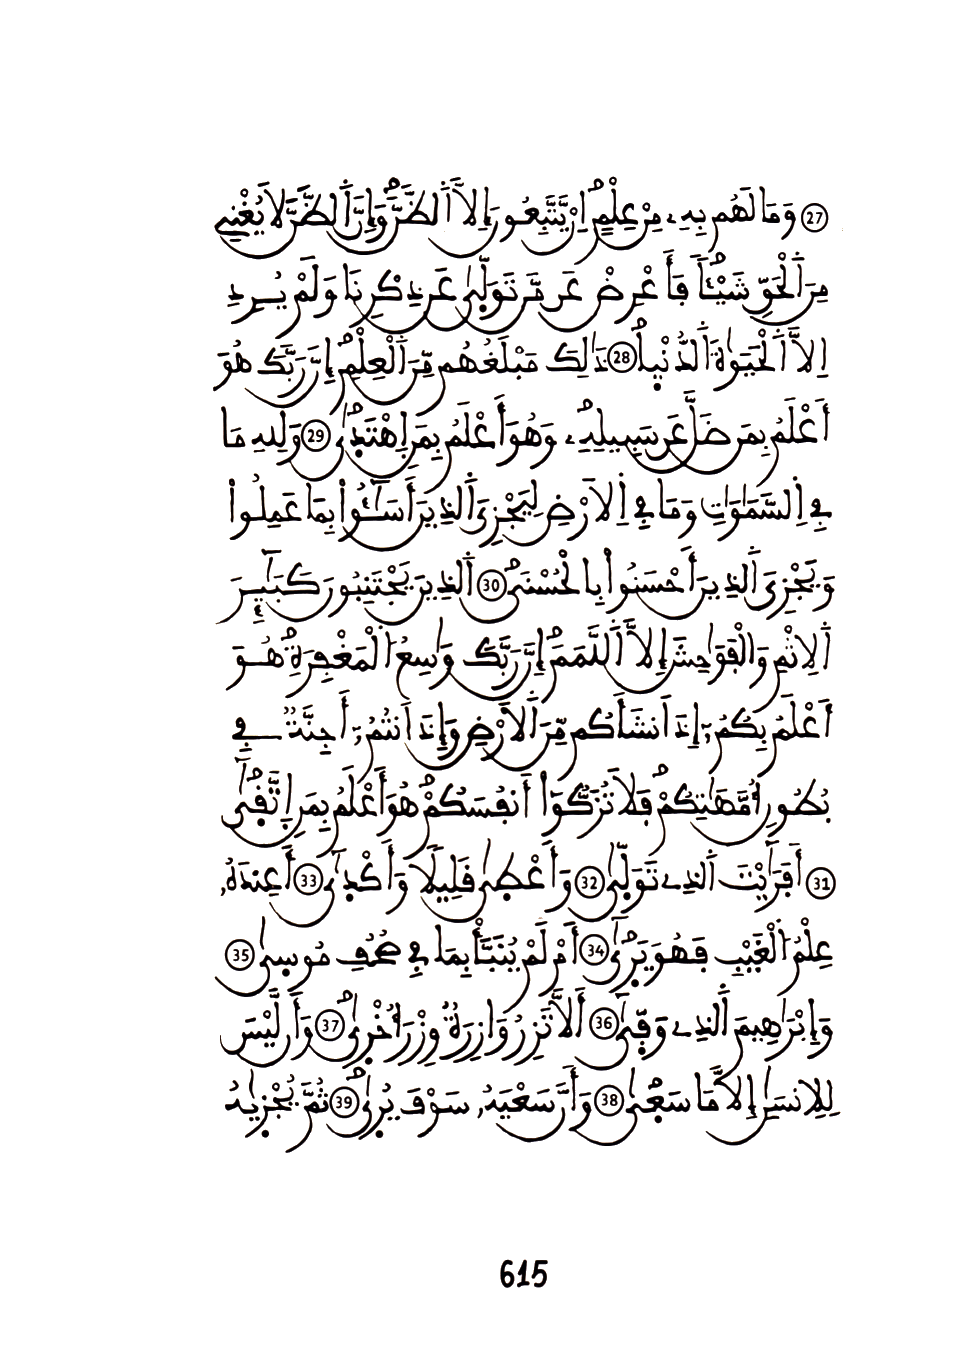 ㉗ وَمَا لَهُم بِهِۦ مِنْ عِلْمٍۖ اِنْ يَّتَّبِعُونَ إِلَّا اَ۬لظَّنَّۖ وَإِنَّ اَ۬لظَّنَّ لَا يُغْنِے
مِنَ اَ۬لْحَقِّ شَيْـٔاٗۖ فَأَعْرِضْ عَن مَّن تَوَلّ۪يٰ عَن ذِكْرِنَا وَلَمْ يُرِدِ
اِلَّا اَ۬لْحَيَوٰةَ اَ۬لدُّنْي۪اۖ ㉘ ذَٰلِكَ مَبْلَغُهُم مِّنَ اَ۬لْعِلْمِۖ إِنَّ رَبَّكَ هُوَ
أَعْلَمُ بِمَن ضَلَّ عَن سَبِيلِهِۦۖ وَهُوَ أَعْلَمُ بِمَنِ اِهْتَد۪يٰۖ ㉙ وَلِلهِ مَا
فِے اِ۬لسَّمَٰوَٰتِ وَمَا فِے اِ۬لَارْضِ لِيَجْزِيَ اَ۬لذِينَ أَسَٰٓـُٔواْ بِمَا عَمِلُواْ
وَيَجْزِيَ اَ۬لذِينَ أَحْسَنُواْ بِالْحُسْنَيۖ ㉚ اَ۬لذِينَ يَجْتَنِبُونَ كَبَٰٓئِرَ
اَ۬لِاثْمِ وَالْفَوَٰحِشَ إِلَّا اَ۬للَّمَمَۖ إِنَّ رَبَّكَ وَٰسِعُ اُ۬لْمَغْفِرَةِۖ هُوَ
أَعْلَمُ بِكُمُۥٓ إِذَ اَنشَأَكُم مِّنَ اَ۬لَارْضِ وَإِذَ اَنتُمُۥٓ أَجِنَّةٞ فِے
بُطُونِ أُمَّهَٰتِكُمْۖ فَلَا تُزَكُّوٓاْ أَنفُسَكُمْۖ هُوَ أَعْلَمُ بِمَنِ اِتَّق۪يٰٓۖ
㉛ أَفَرَٰٓيْتَ اَ۬لذِے تَوَلّ۪يٰ ㉜ وَأَعْط۪يٰ قَلِيلاٗ وَأَكْد۪يٰٓ ㉝ أَعِندَهُۥ
عِلْمُ اُ۬لْغَيْبِ فَهُوَ يَر۪يٰٓۖ ㉞ أَمْ لَمْ يُنَبَّأْ بِمَا فِے صُحُفِ مُوس۪يٰ ㉟
وَإِبْرَٰهِيمَ اَ۬لذِے وَفّ۪يٰٓ ㊱ أَلَّا تَزِرُ وَازِرَةٞ وِزْرَ أُخْر۪يٰۖ ㊲ وَأَن لَّيْسَ
لِلِانسَٰنِ إِلَّا مَا سَع۪يٰۖ ㊳ وَأَنَّ سَعْيَهُۥ سَوْفَ يُر۪يٰۖ ㊴ ثُمَّ يُجْز۪يٰهُ
615